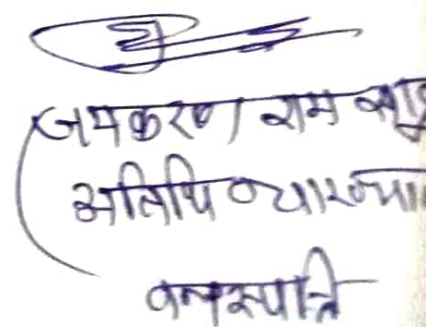 जयकरण राम साहु
अतिथि व्याख्या
वनस्पति